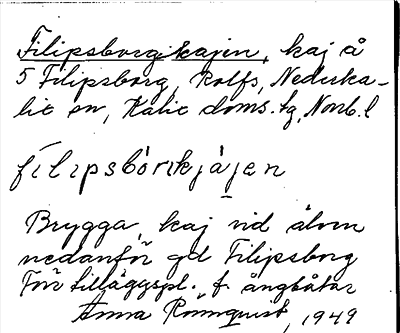 Filipsborgskajen, kaj å
5 Filipsborg, Rolfs, Nederka-
lix sn, Kalix doms. hg, Norrb. l
filipsbòrikjàjen
Brygga, kaj vid älven
nedanför gd Filipsborg
Förr tilläggspl. f ångbåtar
Anna Rönnqvist, 1949